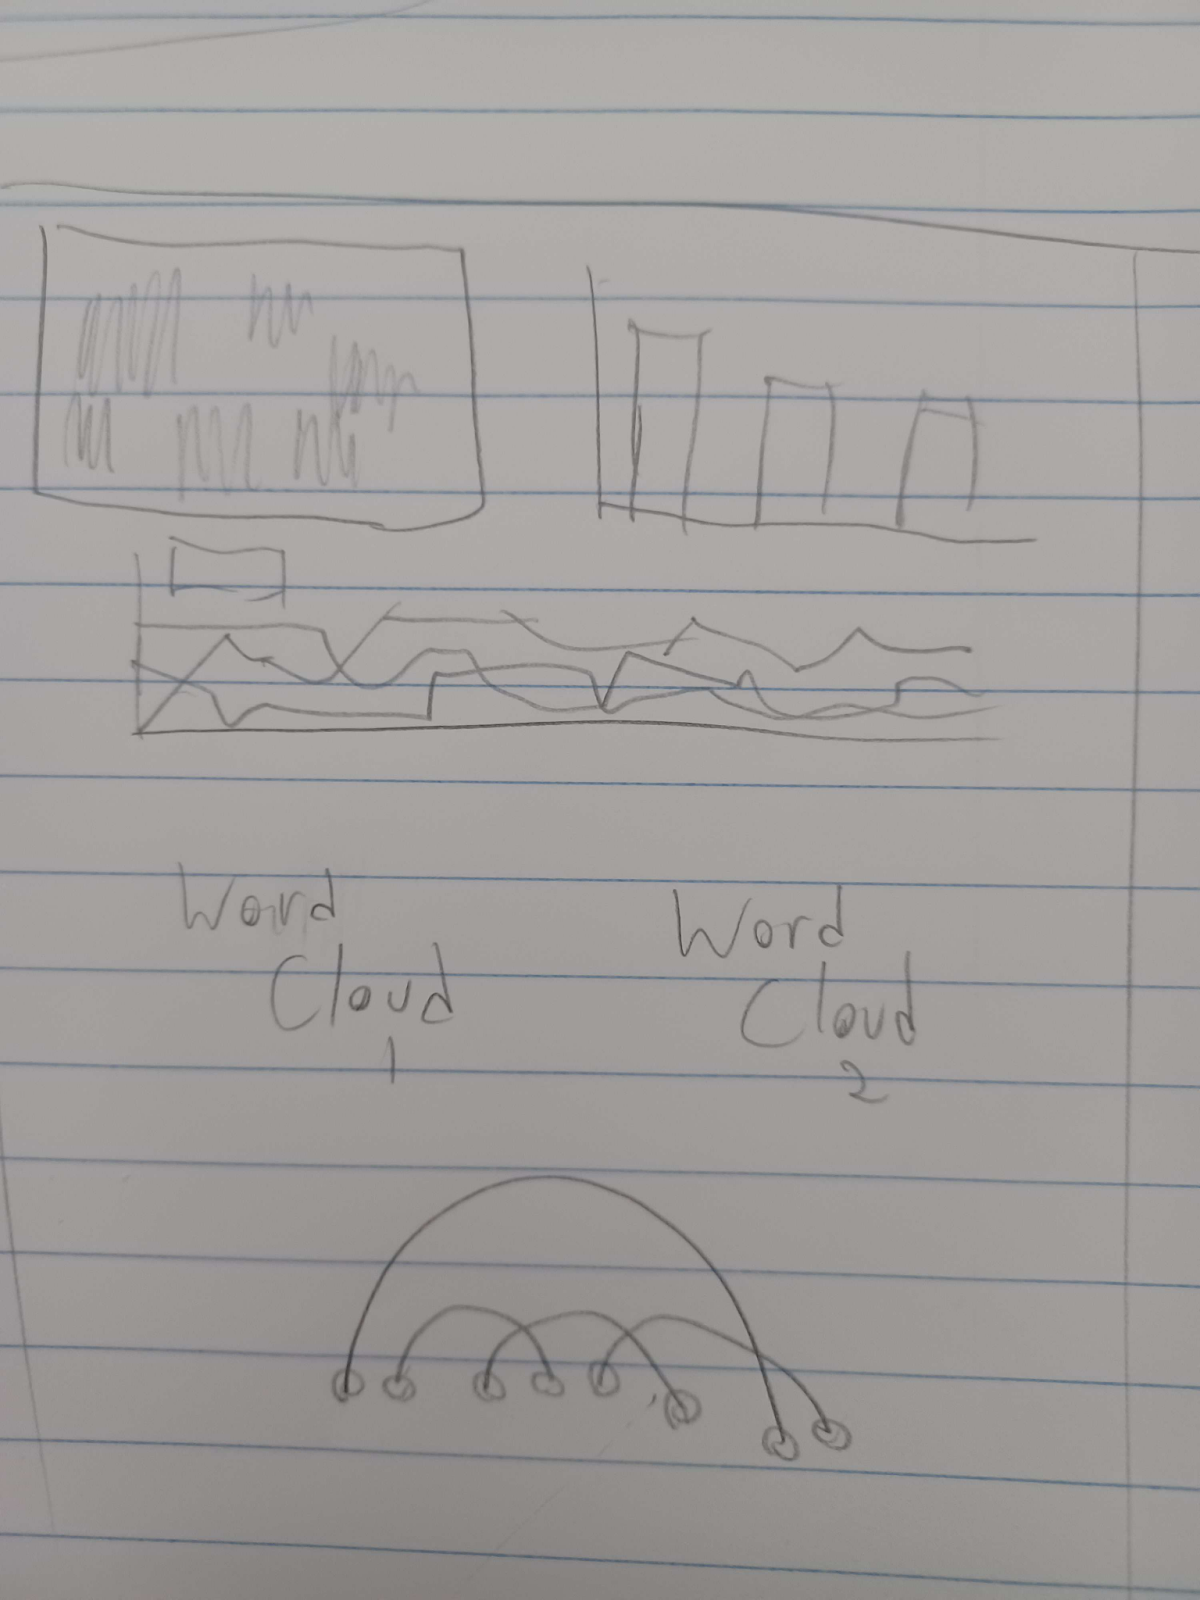 Word
Cloud
1
Word
Cloud
2